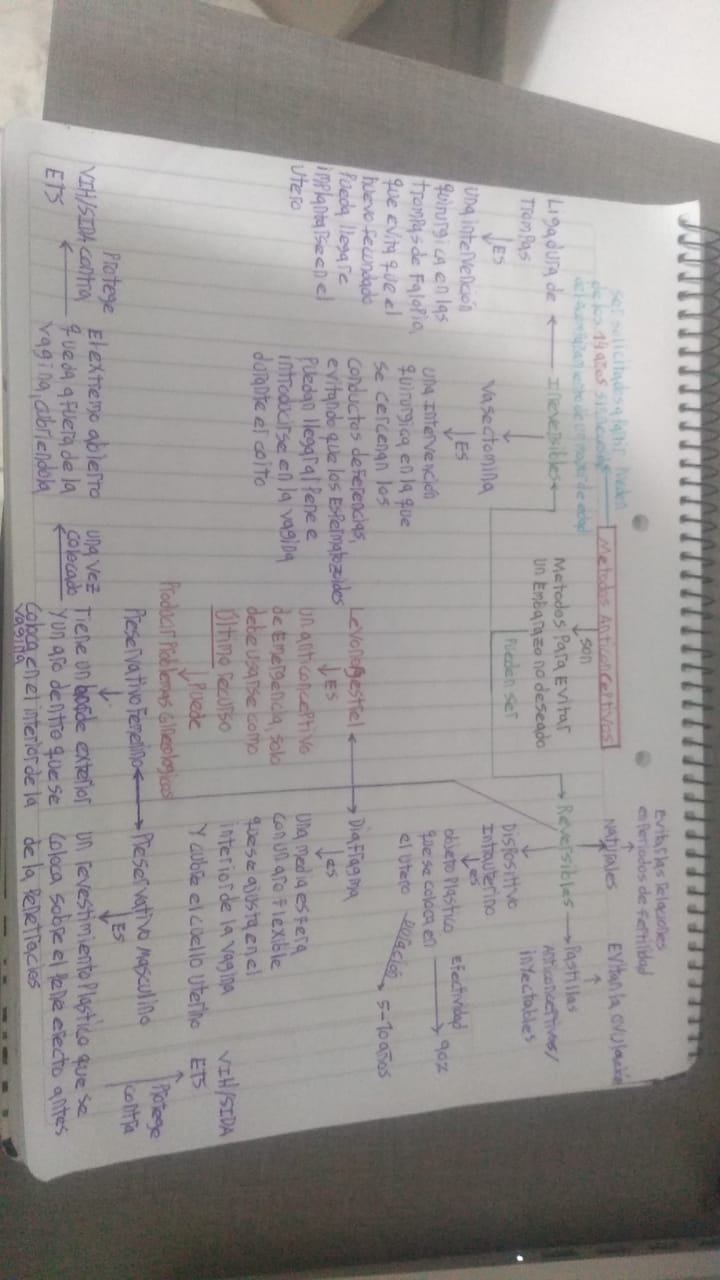 Evitar las relaciones
en periodos de Fertilidad
Naturales
Evitan la ovulación
ser solicitados a Partir Pueden
de los 14 años sin
del acompañamiento de un mayor de edad
Metodos Anticonceptivos
son
Metodos Para Evitar
un Embarazo no deseado
Pueden ser
Ligadura de
Trompas
ES
una intervención
quirurgica en las
trompas de Falopio,
que evita que el
huevo fecundado
Pueda llegar e
implantarse en el
Utero
Irreversibles
Vasectomina
ES
una Intervención
quirurgica en la que
se cercenan los
conductos deferencias,
evitando que los Espermatozoides
Puedan llegar al Pene e
introducirse en la vagina
durante el coito
Reversibles
Pastillas
Anticonceptivos/
inyectables
Dispositivo
Intrauterino
es
objeto Plastico
que se coloca en
el Utero
Efectividad
90%
Duración
5-10 años
Levonorgestrel
ES
un anticonceptivo
de Emergencia, solo
debe usarse como
Último recurso
Puede
Producir Problemas Ginecologicos
Diafragma
es
una media esfera
con un aro flexible
que se ajusta en el
interior de la vagina
Y cubre el cuello Uterino
Preservativo Femenino
Tiene un borde exterior
Y un aro dentro que se
coloca en el interior de la
vagina
una vez
colocado
El extremo abierto
queda afuera de la
vagina, cubriendola
Protege
contra
VIH/SIDA
ETS
Preservativo Masculino
ES
un revestimiento Plastico que se
coloca sobre el Pene erecto antes
de la Penetracios
Protege
contra
VIH/SIDA
ETS